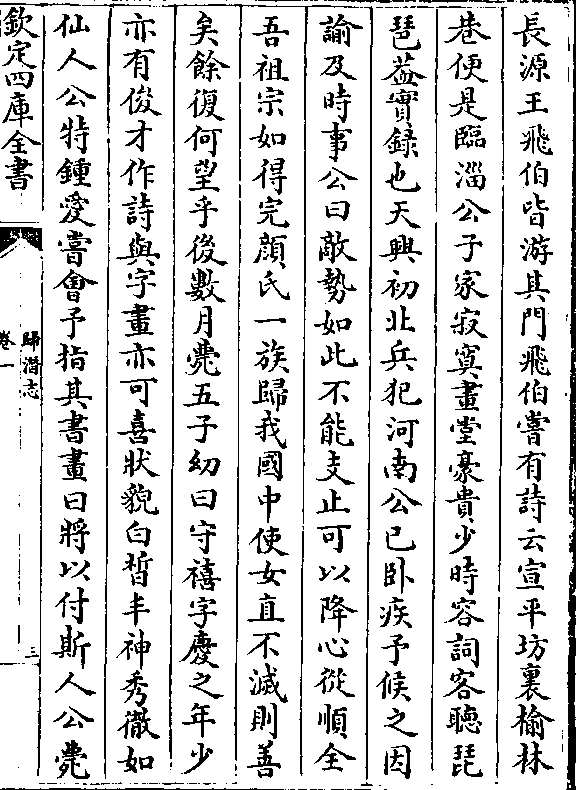 長源王飛伯皆游其門飛伯嘗有詩云宣平坊裏榆林
巷便是臨淄公子家寂寞畫堂豪貴少時容詞客聽琵
琶葢實錄也天興初北兵犯河南公已卧疾予候之因
諭及時事公曰敵勢如此不能支止可以降心從順全
吾祖宗如得完顔氏一族歸我國中使女直不滅則善
矣餘復何望乎後數月薨五子幼曰守禧字慶之年少
亦有俊才作詩與字畫亦可喜狀貌白晳丰神秀徹如
仙人公特鍾愛嘗會予指其書畫曰將以付斯人公薨
欽定四庫全書
歸潛志
卷一
三